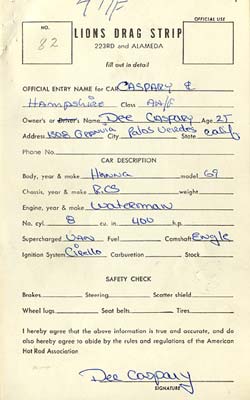 A/F
OFFICIAL USE
NO.
82
LIONS DRAG STRIP
223RD and ALAMEDA
fill out in detail
OFFICIAL ENTRY NAME for CAR CASPARY &
Hampshire Class AA/F
Owner's or Driver's Name Dee Caspary Age 25
Address 1508 City Palos Verdes State Calif
Phone No.
CAR DESCRIPTION
Body, year & make Hanna model 69
Chassis, year & make RCS weight
Engine, year & make Waterman
No. cyl. 8 cu. in. 400 h.p.
Supercharged VAN Fuel Camshaft Engle
Ignition System Cirello Carburetion Stock
SAFETY CHECK
Brakes Steering Scatter shield
Wheel lugs Seat belts Tires
I hereby agree that the above information is true and accurate, and do
also hereby agree to abide by the rules and regulations of the American
Hot Rod Association
Dee Caspary
SIGNATURE